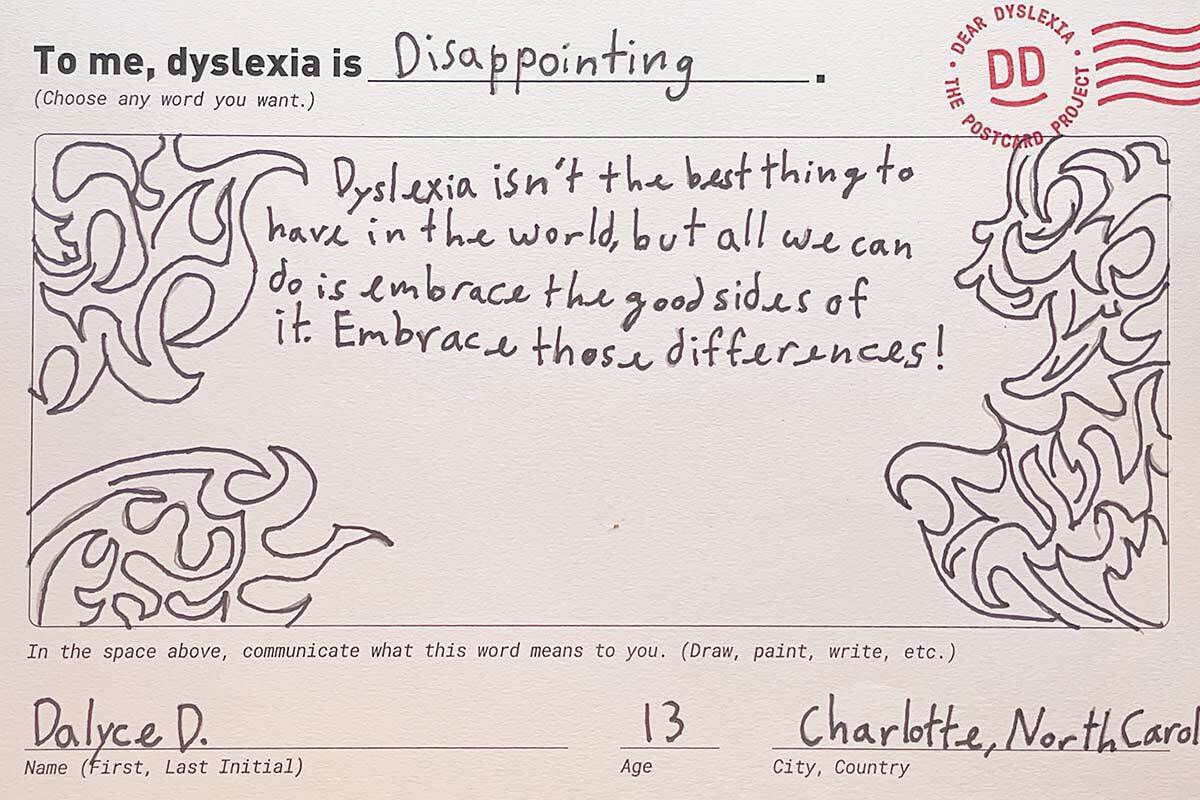 To me, dyslexia is Disappointing.
(Choose any word you want.)
DEAR DYSLEXIA • THE POSTCARD PROJECT •
DD
Dyslexia isn't the best thing to
have in the world, but all we can
do is embrace the good sides of
it. Embrace those differences!
In the space above, communicate what this word means to you. (Draw, paint, write, etc.)
Dalyce D. 13 Charlotte, North Carol
Name (First, Last Initial) Age City, Country